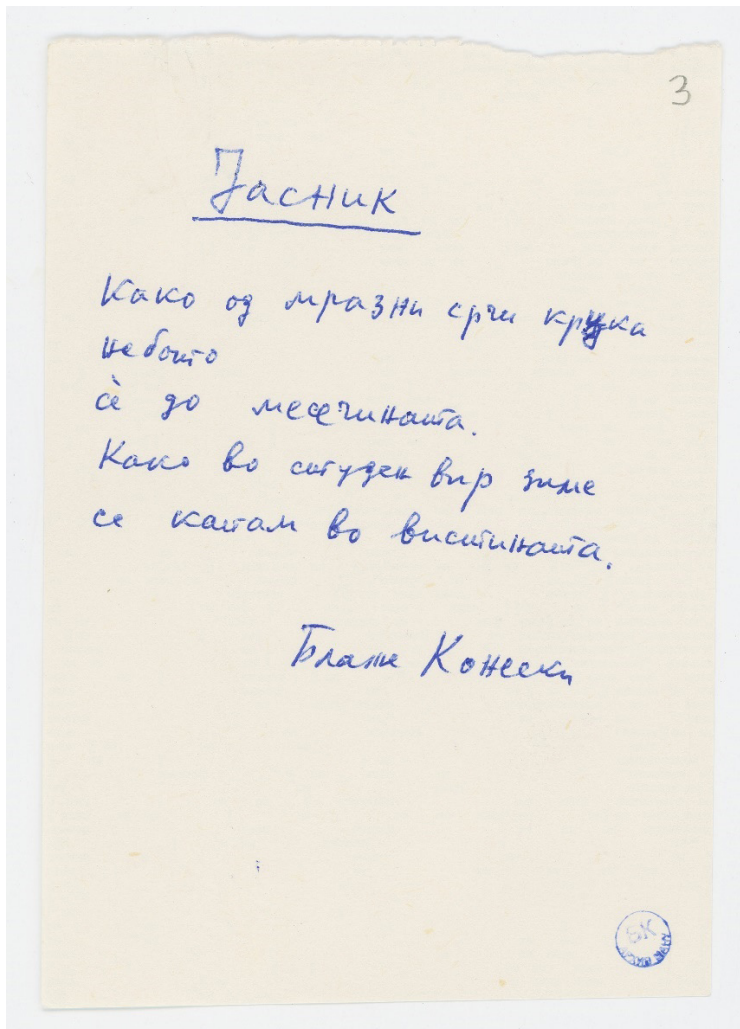 3
Јасник
Како од мразни срчи крцка
небото
сѐ до месечината.
Како во студен вир зиме
се капам во вистината.
Блаже Конески
БК